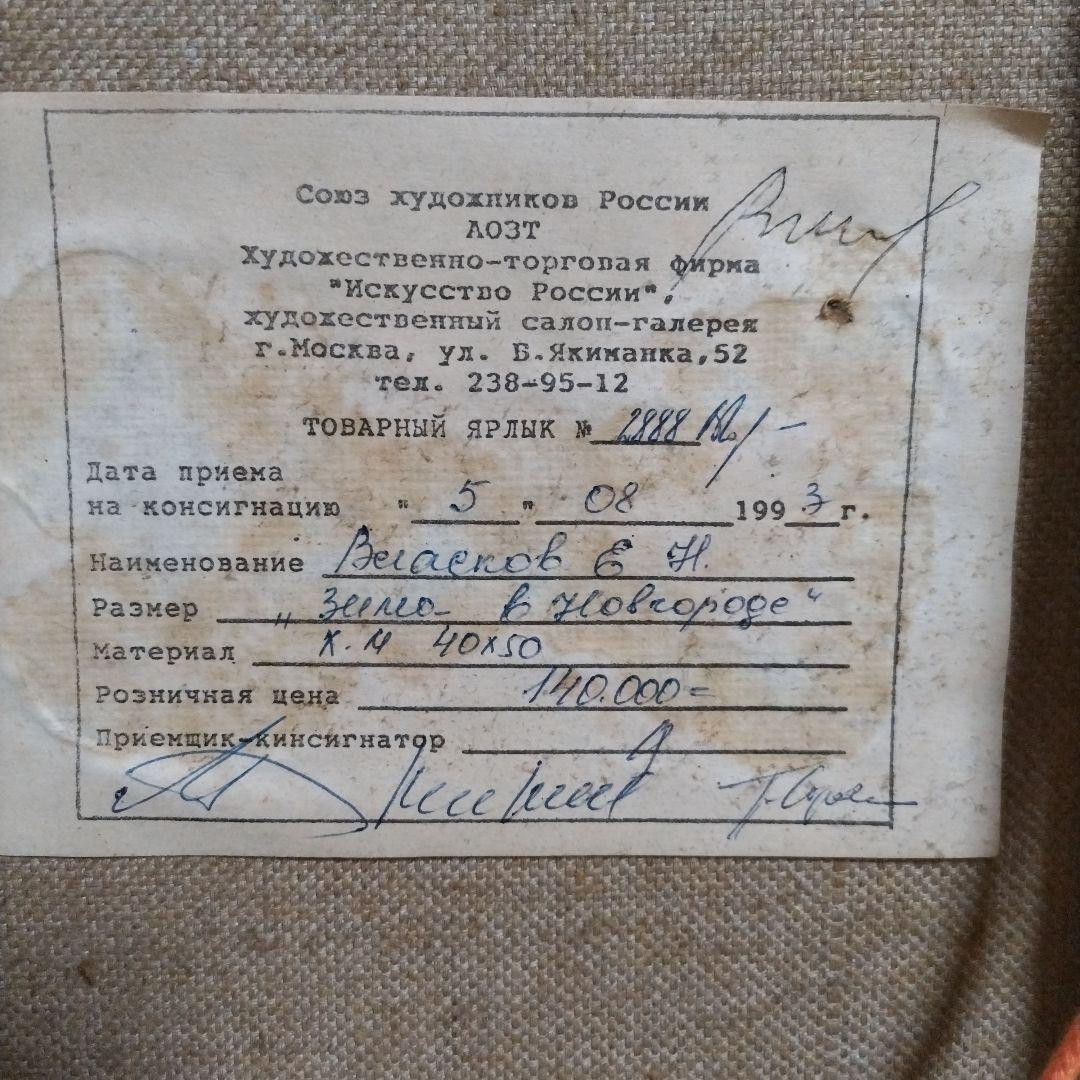 Союз художников России
АОЗТ
Художественно-торговая фирма
"Искусство России",
художественный салон-галерея
г.Москва, ул. Б.Якиманка,52
тел. 238-95-12
ТОВАРНЫЙ ЯРЛЫК № 2888
Дата приема
на консигнацию " 5 " 08 1993 г.
Наименование Власков Е Н.
Размер "Зима в Новгороде"
Материал х.м 40х50
Розничная цена 140.000=
Приемщик-кинсигнатор